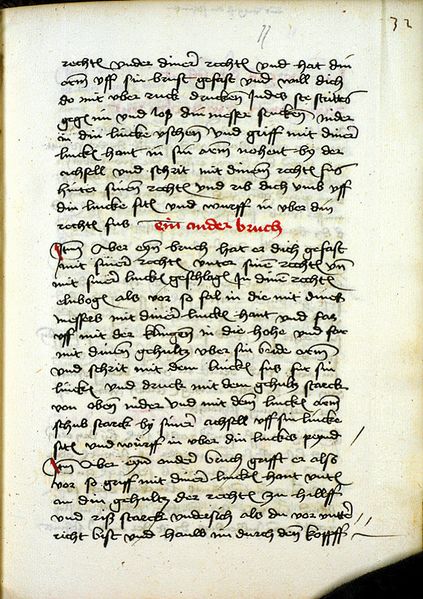 32
rechtn vnder diner rechtn vnd hat din
arm vff sin brust gefast vnd will dich
do mit vber ruck drucken Indes ste stritts
gegn im vnd loß din messer sencken nider
in din lincke vchsen vnd griff mit diner
linckn hant in sin arm nohent by der
achsell vnd schrit mit dinem rechtn fus
hinter sinen rechtn vnd rib dich vmb vff
din lincke sitn vnd wurff in vber din
rechtn fus ein ander bruch
Item Aber eyn bruch hat er dich gefast
mit siner rechtn vnter sine rechtn vn
mit siner linckn geschlagn In dinen rechtn
elnbogen als vor so fal in die mit dines
messers mit diner linckn hant vnd far
vff mit der klingen in die hohe vnd far
mit dinem gehultz vber sin bede arm
vnd schrit mit dem linckn fus fur sin
lincken vnd druck mit dem gehultz starck
von oben nider vnd mit dem linckn arm
schub starck by siner achsell vff sin lincke
sitn vnd wurff in vber din linckes
Item Aber eyn ander bruch grifft er als
vor so griff mit diner linckn hant vntn
an din gehultz der rechtn zu hilff
vnd riß starck vndersich als du vor vntter
richt bist vnd hauw im durch den kopff